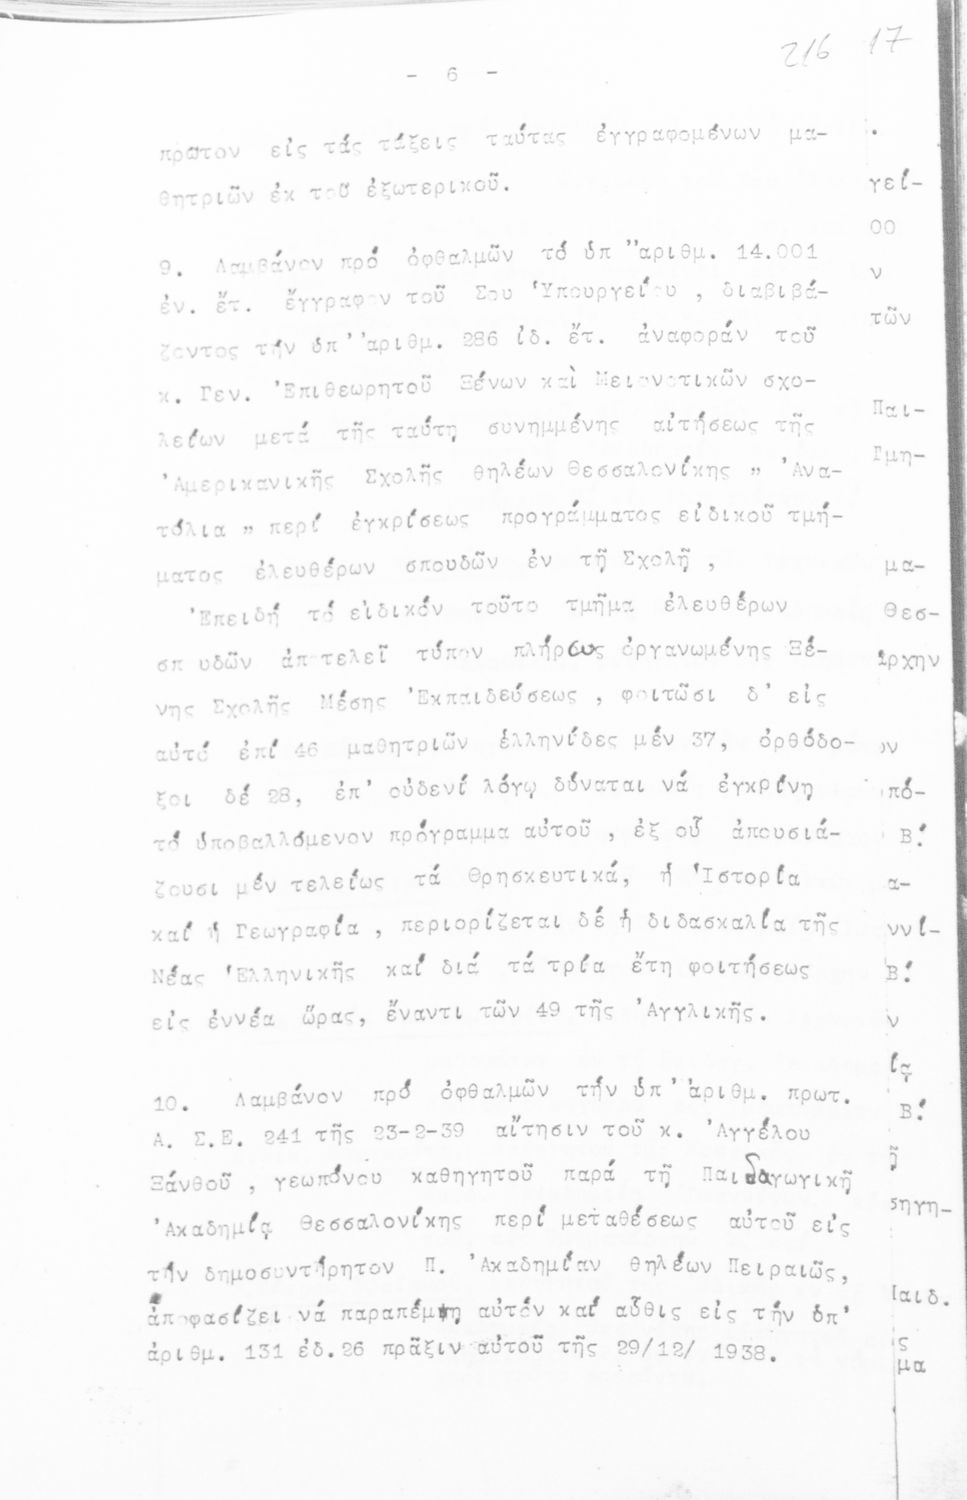 216 17
- 6 -
πρωτον εἰς τάς τάξεις ταύτας ἐγγραφομένων μα-
θητριῶν ἐκ τοῦ ἐξωτερικοῦ.
9. Λαμβάνον πρό ὀφθαλμῶν τό ὑπ "αριθμ. 14.001
ἐν. ἔτ. ἔγγραφον τοῦ Σου Ὑπουργείου , διαβιβά-
ζοντος τήν ὑπ' ἀριθμ. 286 ἰδ. ἔτ. ἀναφοράν τοῦ
κ. Γεν. Ἐπιθεωρητοῦ Ξένων καὶ Μειονοτικῶν σχο-
λείων μετά τῆς ταύτη συνημμένης αἰτήσεως τῆς
Ἀμερικανικῆς Σχολῆς θηλέων Θεσσαλονίκης " Ἀνα-
τόλια " περί ἐγκρίσεως προγράμματος εἰδικοῦ τμή-
ματος ἐλευθέρων σπουδῶν ἐν τῇ Σχολῇ ,
Ἐπειδή τό εἰδικόν τοῦτο τμῆμα ἐλευθέρων
σπ υδῶν ἀποτελεῖ τύπον πλήρως ὀργανωμένης Ξέ-
νης Σχολῆς Μέσης Ἐκπαιδεύσεως , φοιτῶσι δ' εἰς
αὐτό ἐπί 46 μαθητριῶν ἑλληνίδες μέν 37, ὀρθόδο-
ξοι δέ 28, ἐπ' οὐδενί λόγῳ δύναται νά ἐγκρίνῃ
τό ὑποβαλλόμενον πρόγραμμα αὐτοῦ , ἐξ οὗ ἀπουσιά-
ζουσι μέν τελείως τά Θρησκευτικά, ἡ Ἱστορία
καί ἡ Γεωγραφία , περιορίζεται δέ ἡ διδασκαλία τῆς
Νέας Ἑλληνικῆς καί διά τά τρία ἔτη φοιτήσεως
εἰς ἐννέα ὥρας, ἔναντι τῶν 49 τῆς Ἀγγλικῆς.
10. Λαμβάνον πρό ὀφθαλμῶν τήν ὑπ' ἀριθμ. πρωτ.
Α. Σ.Ε. 241 τῆς 23-2-39 αἴτησιν τοῦ κ. Ἀγγέλου
Ξάνθοῦ , γεωπόνου καθηγητοῦ παρά τῇ Παιδαγωγικῇ
Ἀκαδημίᾳ Θεσσαλονίκης περί μεταθέσεως αὐτοῦ εἰς
τήν δημοσυντήρητον Π. Ἀκαδημίαν θηλέων Πειραιῶς,
ἀποφασίζει νά παραπέμψῃ αὐτόν καί αὖθις εἰς τήν ὑπ'
ἀριθμ. 131 ἐδ.26 πρᾶξιν αὐτοῦ τῆς 29/12/ 1938.
γεί-
00
ν
τῶν
Παι-
Τμη-
μα-
Θεσ-
ἀρχην
ον
πό-
Β!
α-
ννί-
Β!
ν
ίᾳ
Β!
ῇ
σηγη-
Παιδ.
ς
μα